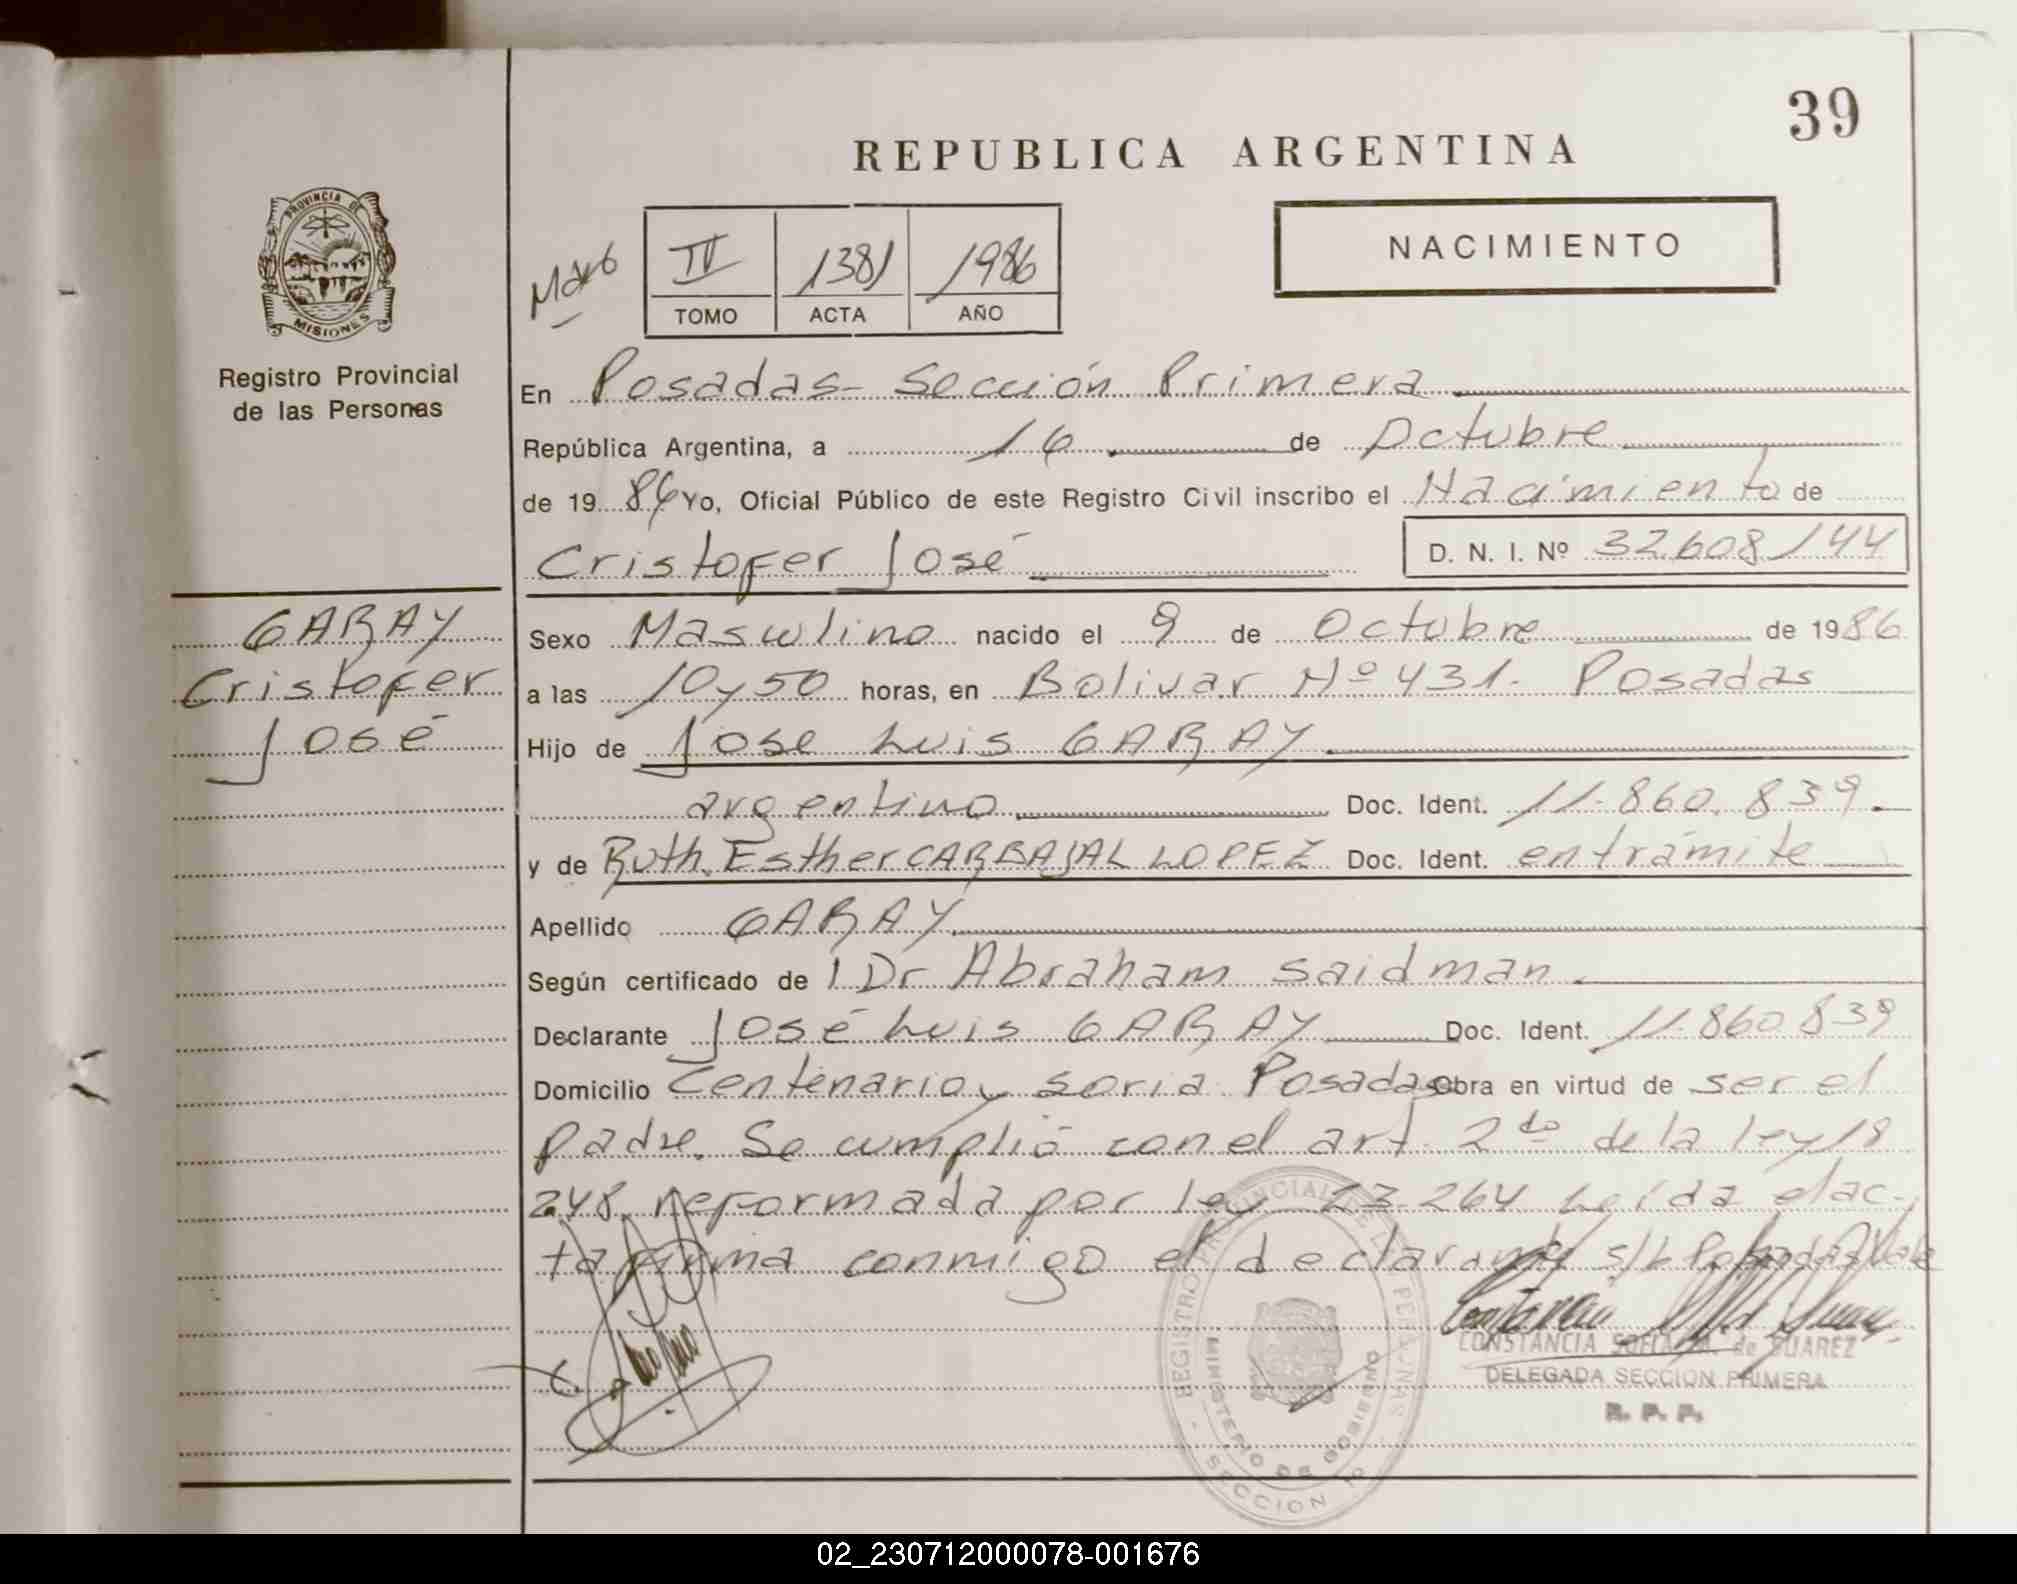 39
REPUBLICA ARGENTINA
NACIMIENTO
PROVINCIA DE
MISIONES
Registro Provincial
de las Personas
IV 1381 1986
TOMO ACTA AÑO
En Posadas- Sección Primera
República Argentina, a 16 de Octubre
de 19 86 Yo, Oficial Público de este Registro Civil inscribo el Nacimiento de
Cristofer José D. N. I. Nº 32.608.144
GARAY
Cristofer
José
Sexo Masculino nacido el 9 de Octubre de 1986
a las 10 y 50 horas, en Bolivar Nº 431. Posadas
Hijo de Jose Luis GARAY
argentino Doc. Ident. 11.860.839.
y de Ruth Esther CARBAJAL LOPEZ Doc. Ident. en trámite
Apellido GARAY
Según certificado de l Dr Abraham Saidman
Declarante José Luis GARAY Doc. Ident. 11.860.839
Domicilio Centenario y Soria Posadas obra en virtud de ser el
padre. Se cumplió con el art. 2do de la ley 18
248 reformada por ley 23.264 Leida el ac-
ta firma conmigo el declarante s/b Posadas Vale
CONSTANCIA SOFIA M. de SUAREZ
DELEGADA SECCION PRIMERA
R. P. P.
REGISTRO PROVINCIAL DE LAS PERSONAS
MINISTERIO DE GOBIERNO
SECCION 1º
02_230712000078-001676